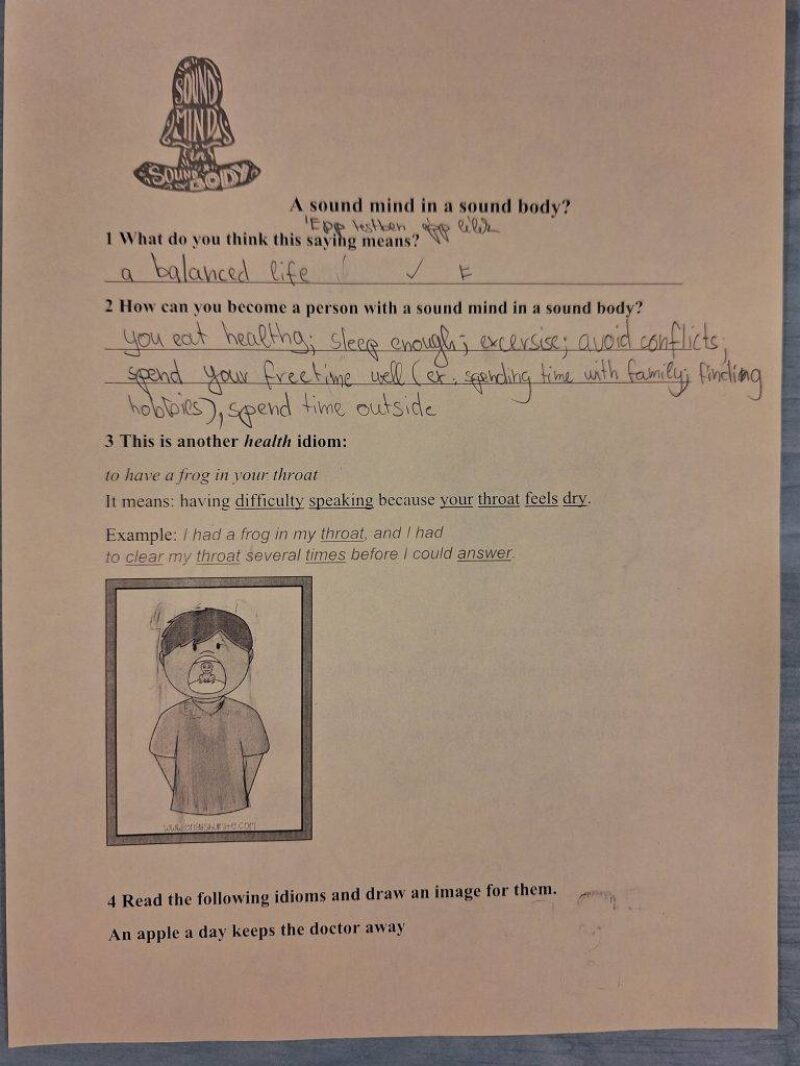 SOUND
MIND
in
SOUND
BODY
A sound mind in a sound body?
"Épp testben épp lélek
1 What do you think this saying means?
a balanced life ✓
2 How can you become a person with a sound mind in a sound body?
you eat healthy; sleep enough; excersise; avoid conflicts;
spend your freetime well (ex. spending time with family; finding
hobbies), spend time outside
3 This is another health idiom:
to have a frog in your throat
It means: having difficulty speaking because your throat feels dry.
Example: I had a frog in my throat, and I had
to clear my throat several times before I could answer.
4 Read the following idioms and draw an image for them.
An apple a day keeps the doctor away